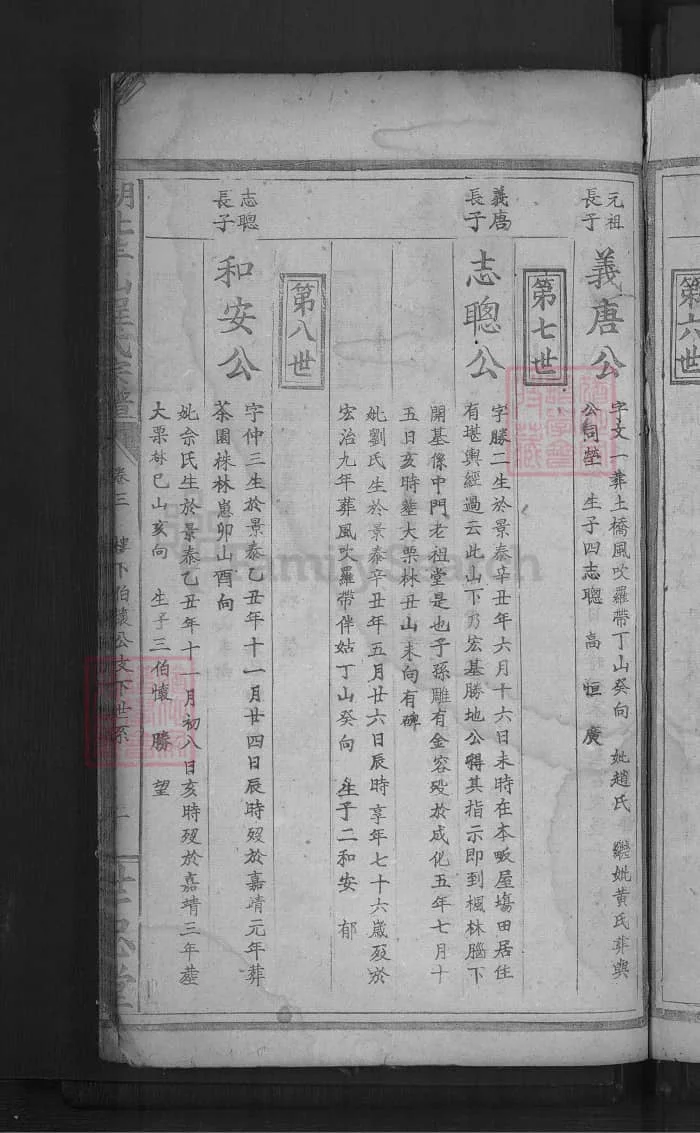 第六世
元祖
長子
義唐公
字文一葬土橋風吹羅帶丁山癸向 妣趙氏 繼妣黃氏葬與
公同塋 生子四志聰 高 恒 廣
第七世
義唐
長子
志聰公
字勝二生於景泰辛丑年六月十六日未時在本畈屋塲田居住
有堪輿經過云此山下乃宏基勝地公得其指示即到楓林腦下
開基係中門老祖堂是也子孫雕有金容歿於成化五年七月十
五日亥時葬大栗林丑山未向有碑
妣劉氏生於景泰辛丑年五月廿六日辰時享年七十六歲歿於
宏治九年葬風吹羅帶伴姑丁山癸向 生子二和安 郁
第八世
志聰
長子
和安公
字仲三生於景泰乙丑年十一月廿四日辰時歿於嘉靖元年葬
茶園株林崽卯山酉向
妣余氏生於景泰乙丑年十一月初八日亥時歿於嘉靖三年葬
大栗林巳山亥向 生子三伯懷 勝 望
卷三 樓下伯懷公支下世系
FamilySearch